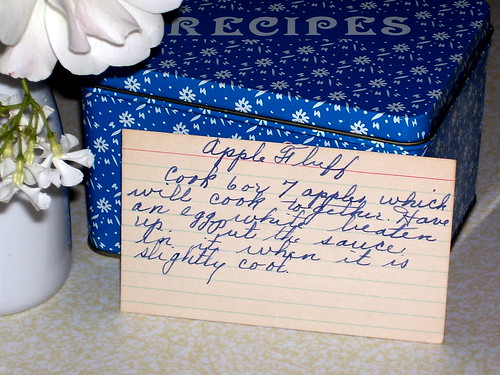 RECIPES
Apple Fluff
Cook 6 or 7 apples which
will cook together. Have
an egg white beaten
up. Put the sauce
in it when it is
slightly cool.